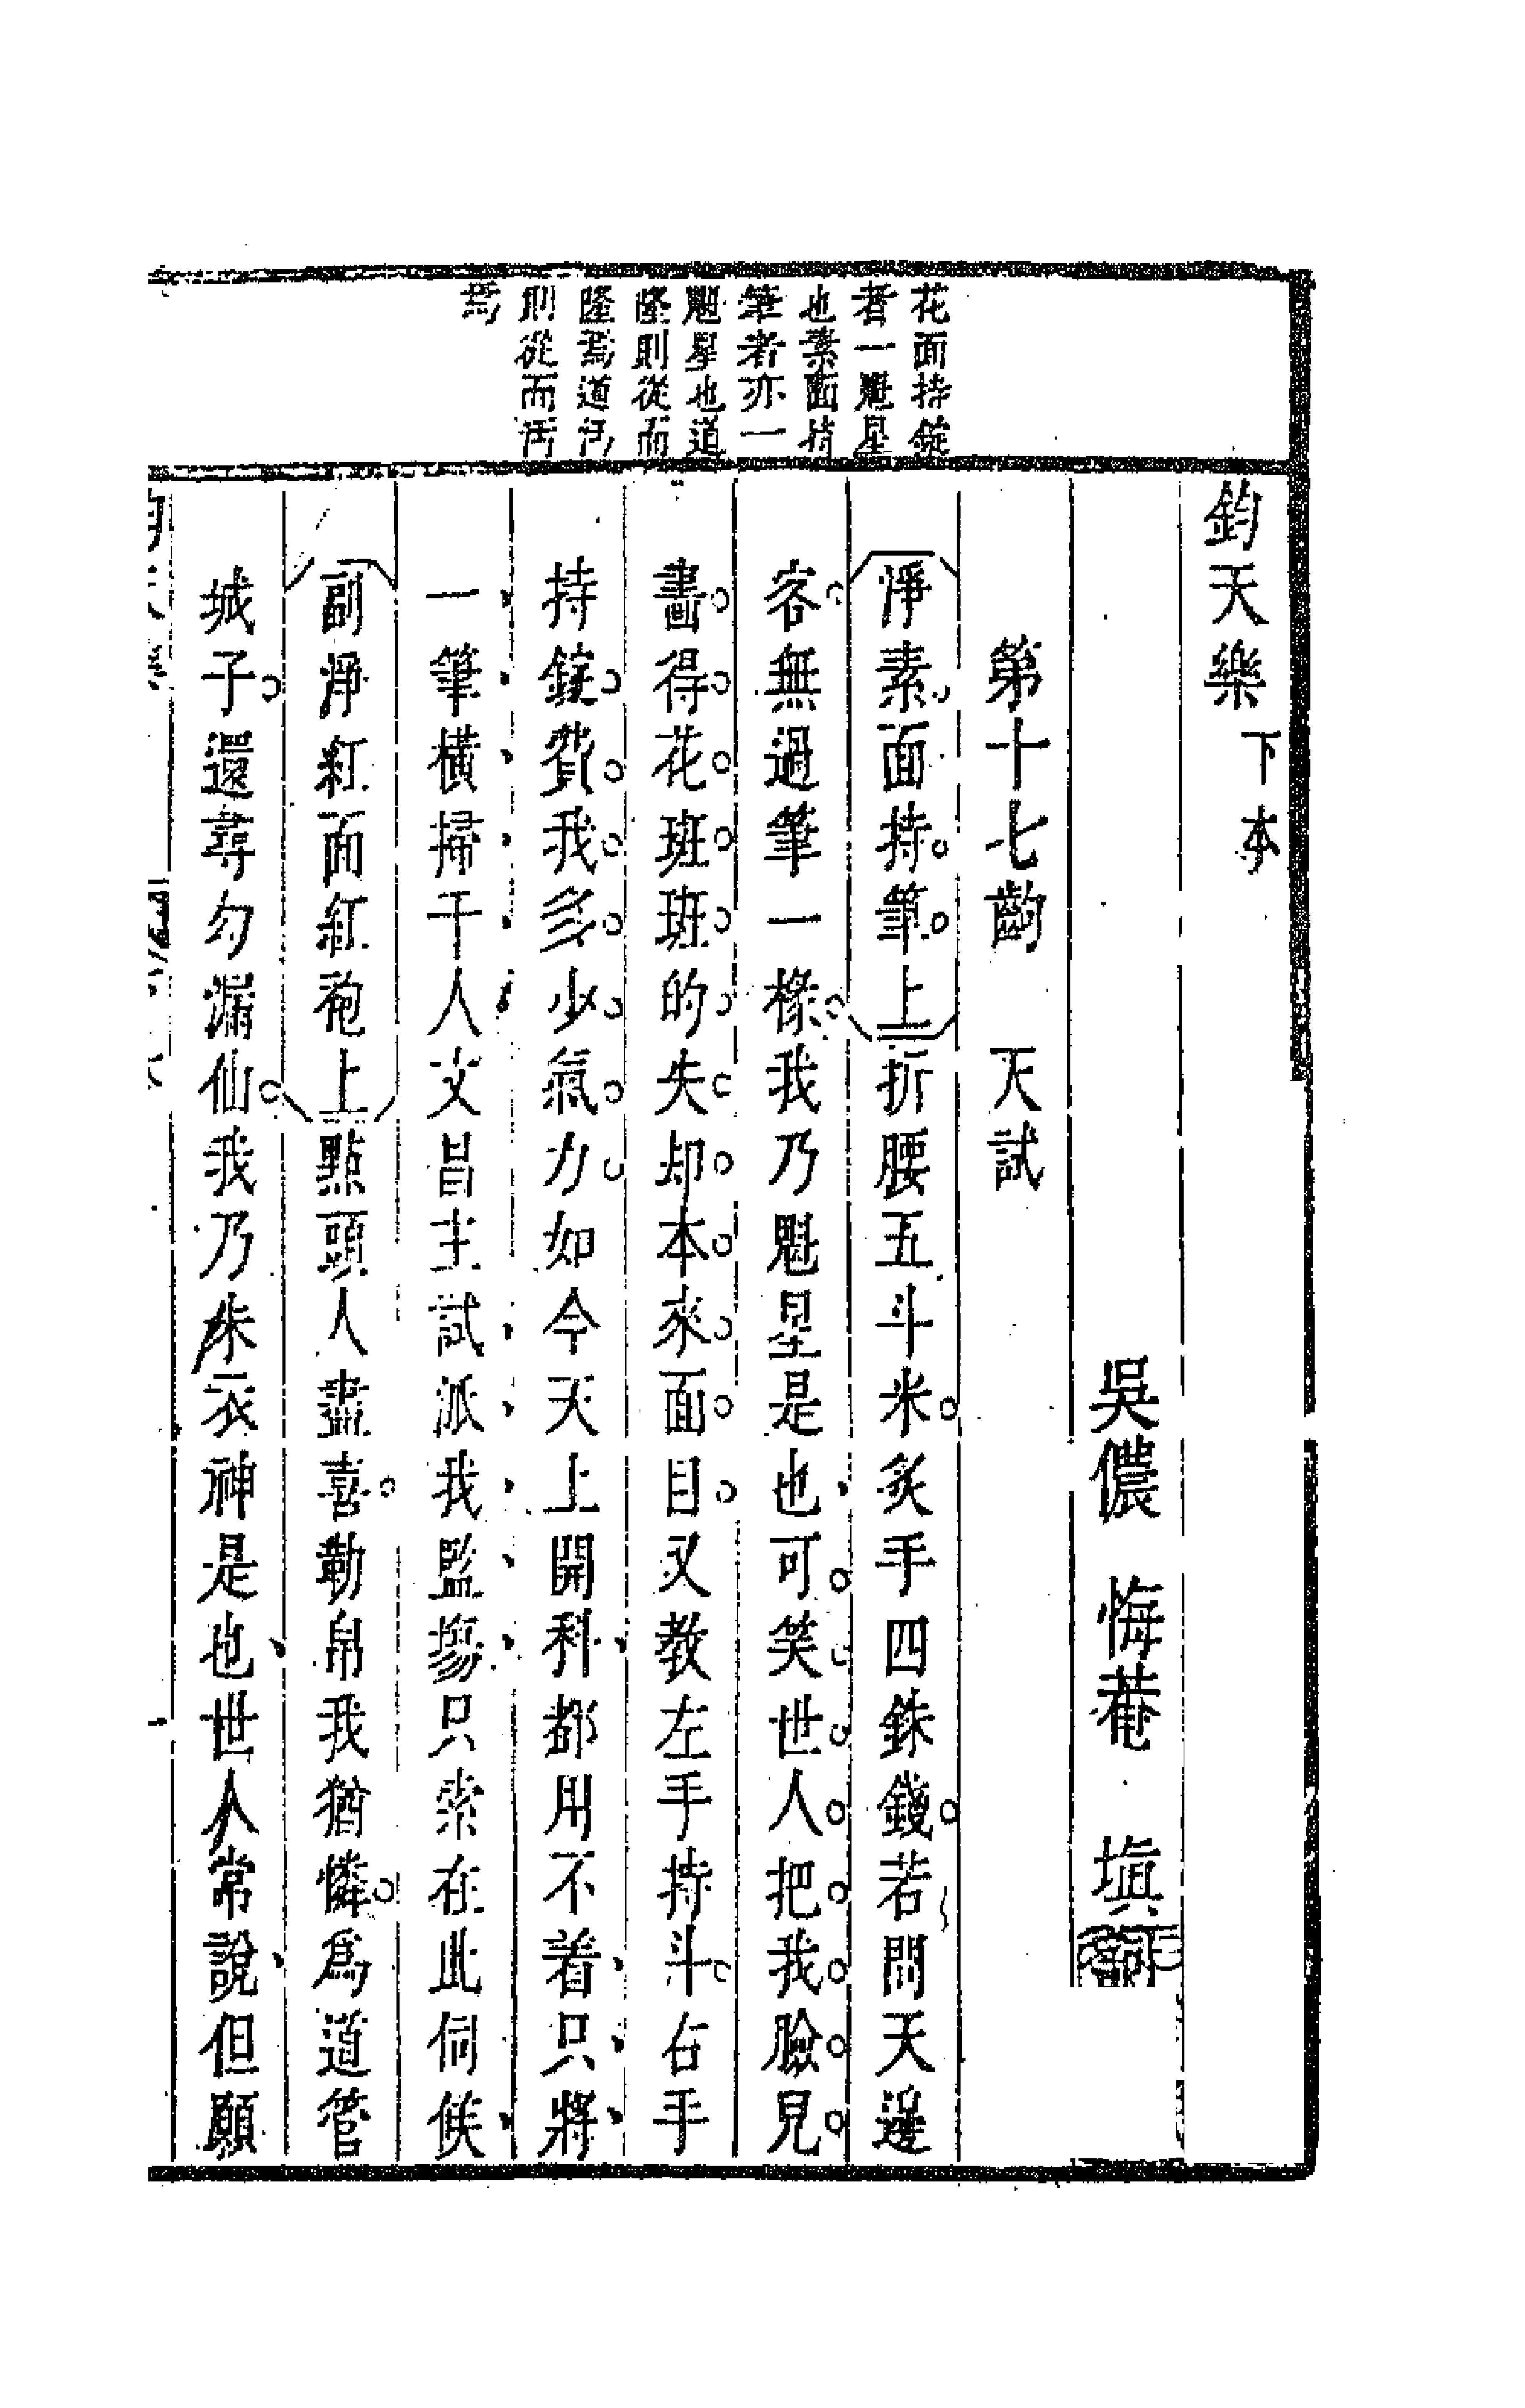 鈞天樂 下本
吳儂 悔菴 塡
第十七齣 天試
淨素面持筆上折腰五斗米炙手四銖錢若問天邊
客無過筆一椽我乃魁星是也可笑世人把我臉兒
畫得花班班的失却本來面目又教左手持斗右手
持錠費我多少氣力如今天上開科都用不着只將
一筆橫掃千人文昌主試派我監塲只索在此伺候
副淨紅面紅袍上點頭人盡喜勒帛我猶憐爲道管
城子還尋勾漏仙我乃朱衣神是也世人常說但願
花面持錠
者一魁星
也素面持
筆者亦一
魁星也道
隆則從而
隆焉道汚
則從而汚
焉